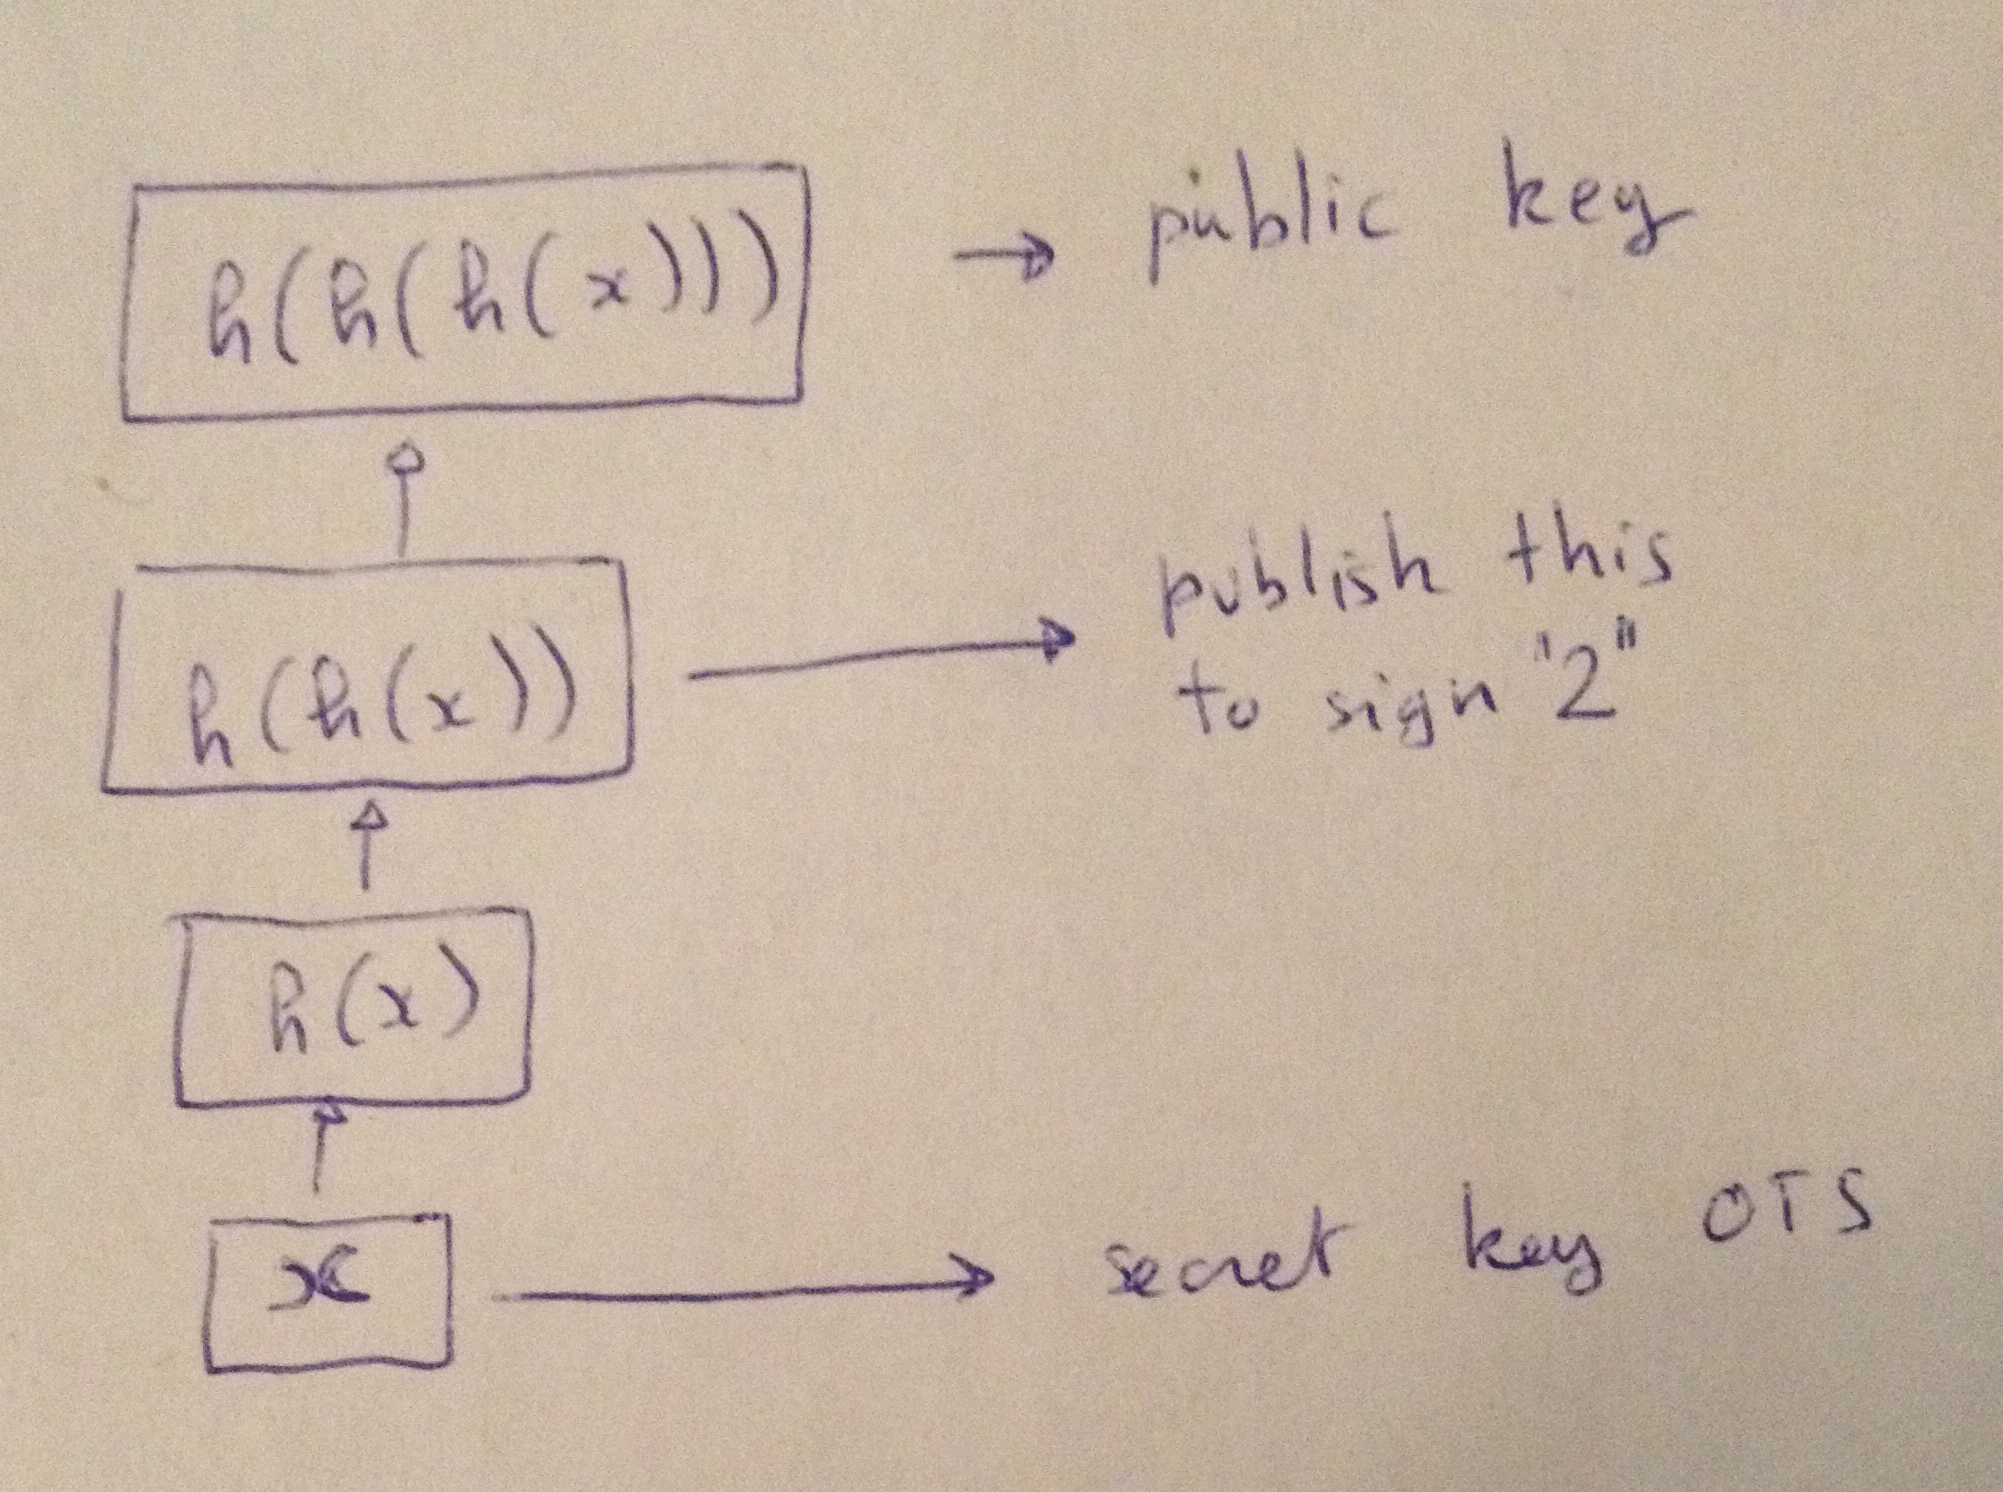 h(h(h(x)))
public key
h(h(x))
publish this
to sign "2"
h(x)
x
secret key OTS